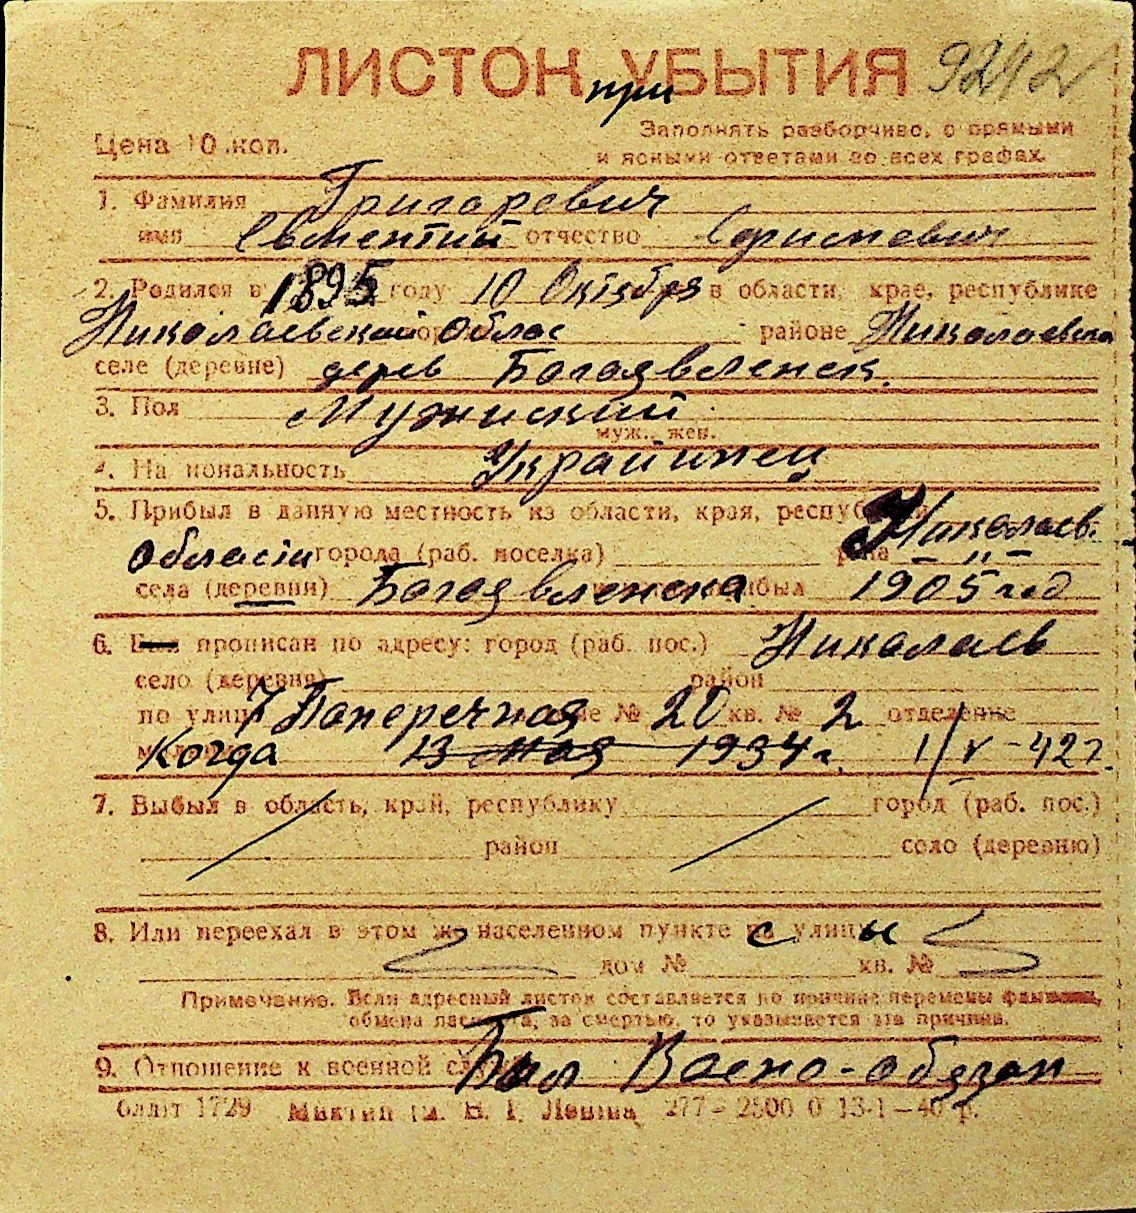 ЛИСТОК УБЫТИЯ 9242
при
Цена 10 коп.
Заполнять разборчиво, с прямыми
и ясными ответами во всех графах.
1. Фамилия Григаревич
имя Евментий отчество
2. Родился в 1895 году 10 Октября в области, крае, республике
Николаевской Облас районе Николаевском
селе (деревне) дерев Багаявленск.
3. Пол Мужиский
муж., жен.
4. Национальность Украйинец
5. Прибыл в данную местность из области, края, республики Николаев.
Области города (раб. поселка) р-на – " –
села (деревни) Багаявленска прибыл 1905 год
6. Был прописан по адресу: город (раб. пос.) Николаев
село (деревня) район
по улице 7 Паперечная № 20 кв. № 2 отделение
Когда 13 мая 1934 г. 1/V-42г.
7. Выбыл в область, край, республику город (раб. пос.)
район село (деревню)
8. Или переехал в этом же населенном пункте с улицы
дом № кв. №
Примечание. Если адресный листок составляется по причине перемены фамилии,
обмена паспорта, за смертью, то указывается эта причина.
9. Отношение к военной службе БылВаено-обязан
облит 1729 им. В. И. Ленина 277-2500 0 13-1-40 р.